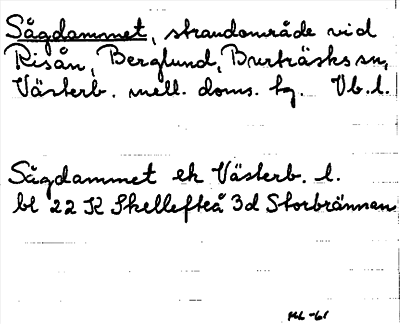 Sågdammet, strandområde vid
Risån, Berglund, Burträsks sn,
Västerb. mell. doms. tg. Vb. l.
Sågdammet ek Västerb. l.
bl 22 K Skellefteå 3d Storbrännan